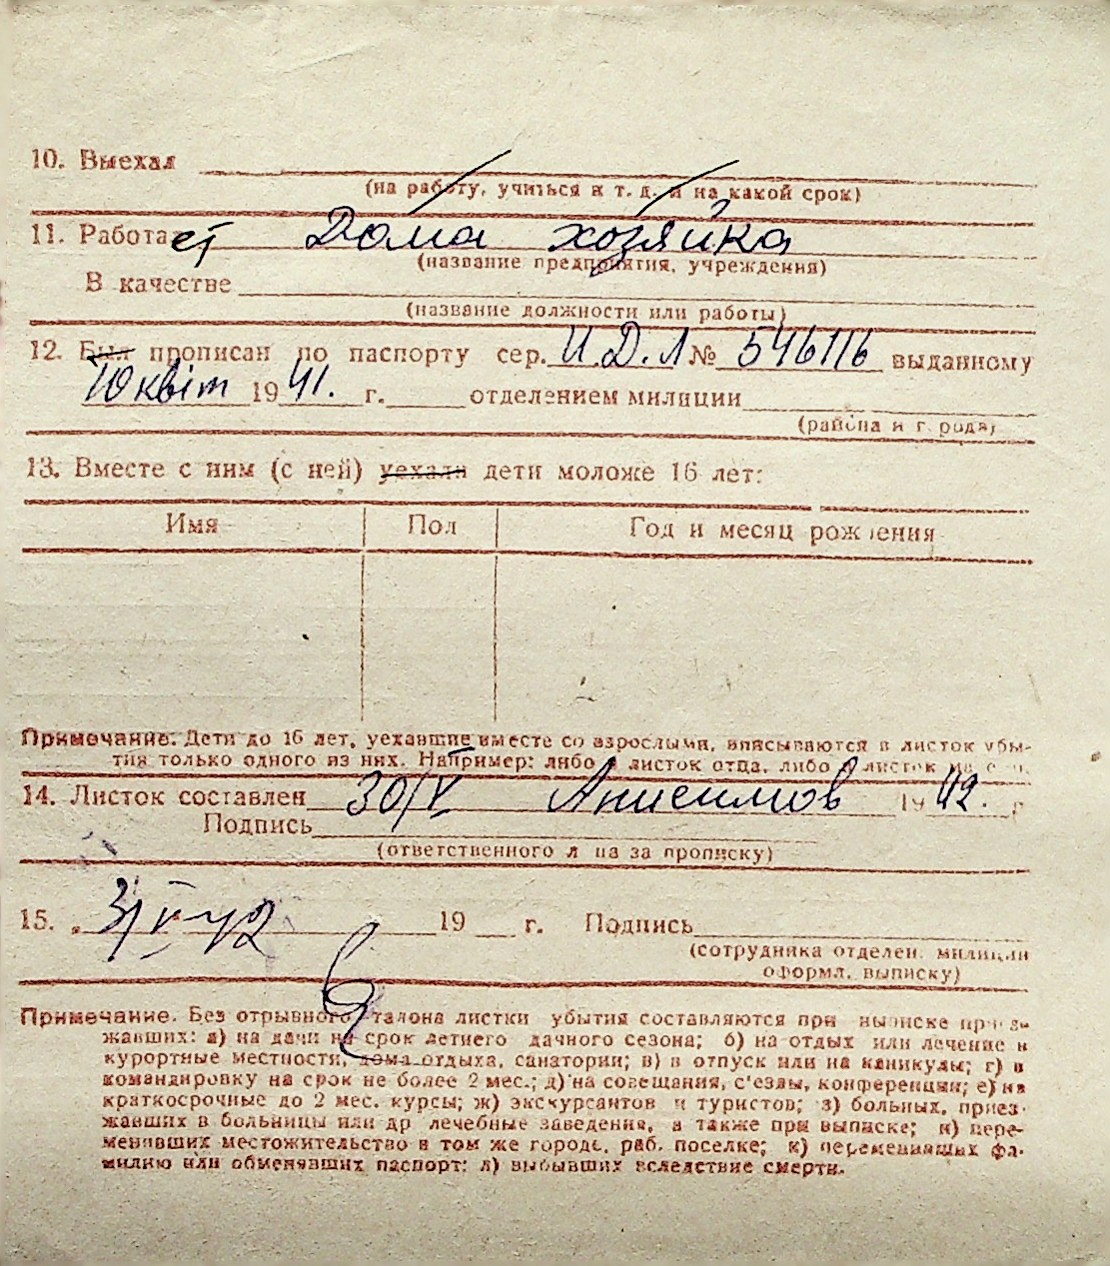 10. Выехал
(на работу, учиться и т. д. и на какой срок)
11. Работает Дома хозяйка
(название предприятия, учреждения)
В качестве
(название должности или работы)
12. Был прописан по паспорту сер. И.Д.Л № 546116 выданному
10 квіт 1941. г. отделением милиции
(района и города)
13. Вместе с ним (с ней) уехали дети моложе 16 лет:
Имя Пол Год и месяц рождения
Примечание. Дети до 16 лет, уехавшие вместе со взрослыми, вписываются в листок убы-
тия только одного из них. Например: либо в листок отца, либо в листок
14. Листок составлен 30/V Анисимов 1942. г
Подпись
(ответственного лица за прописку)
15. „ 31/V-42 19 г. Подпись
(сотрудника отделен. милиции
оформл. выписку)
Примечание. Без отрывного талона листки убытия составляются при выписке приез-
жавших: а) на дачи на срок летнего дачного сезона; б) на отдых или лечение в
курортные местности, дома отдыха, санатории; в) в отпуск или на каникулы; г) в
командировку на срок не более 2 мес.; д) на совещания, с'езды, конференции; е) на
краткосрочные до 2 мес. курсы; ж) экскурсантов и туристов; з) больных, приез-
жавших в больницы или др лечебные заведения, а также при выписке; и) пере-
менивших местожительство в том же городе, раб. поселке; к) переменивших фа-
милию или обменявших паспорт; л) выбывших вследствие смерти.